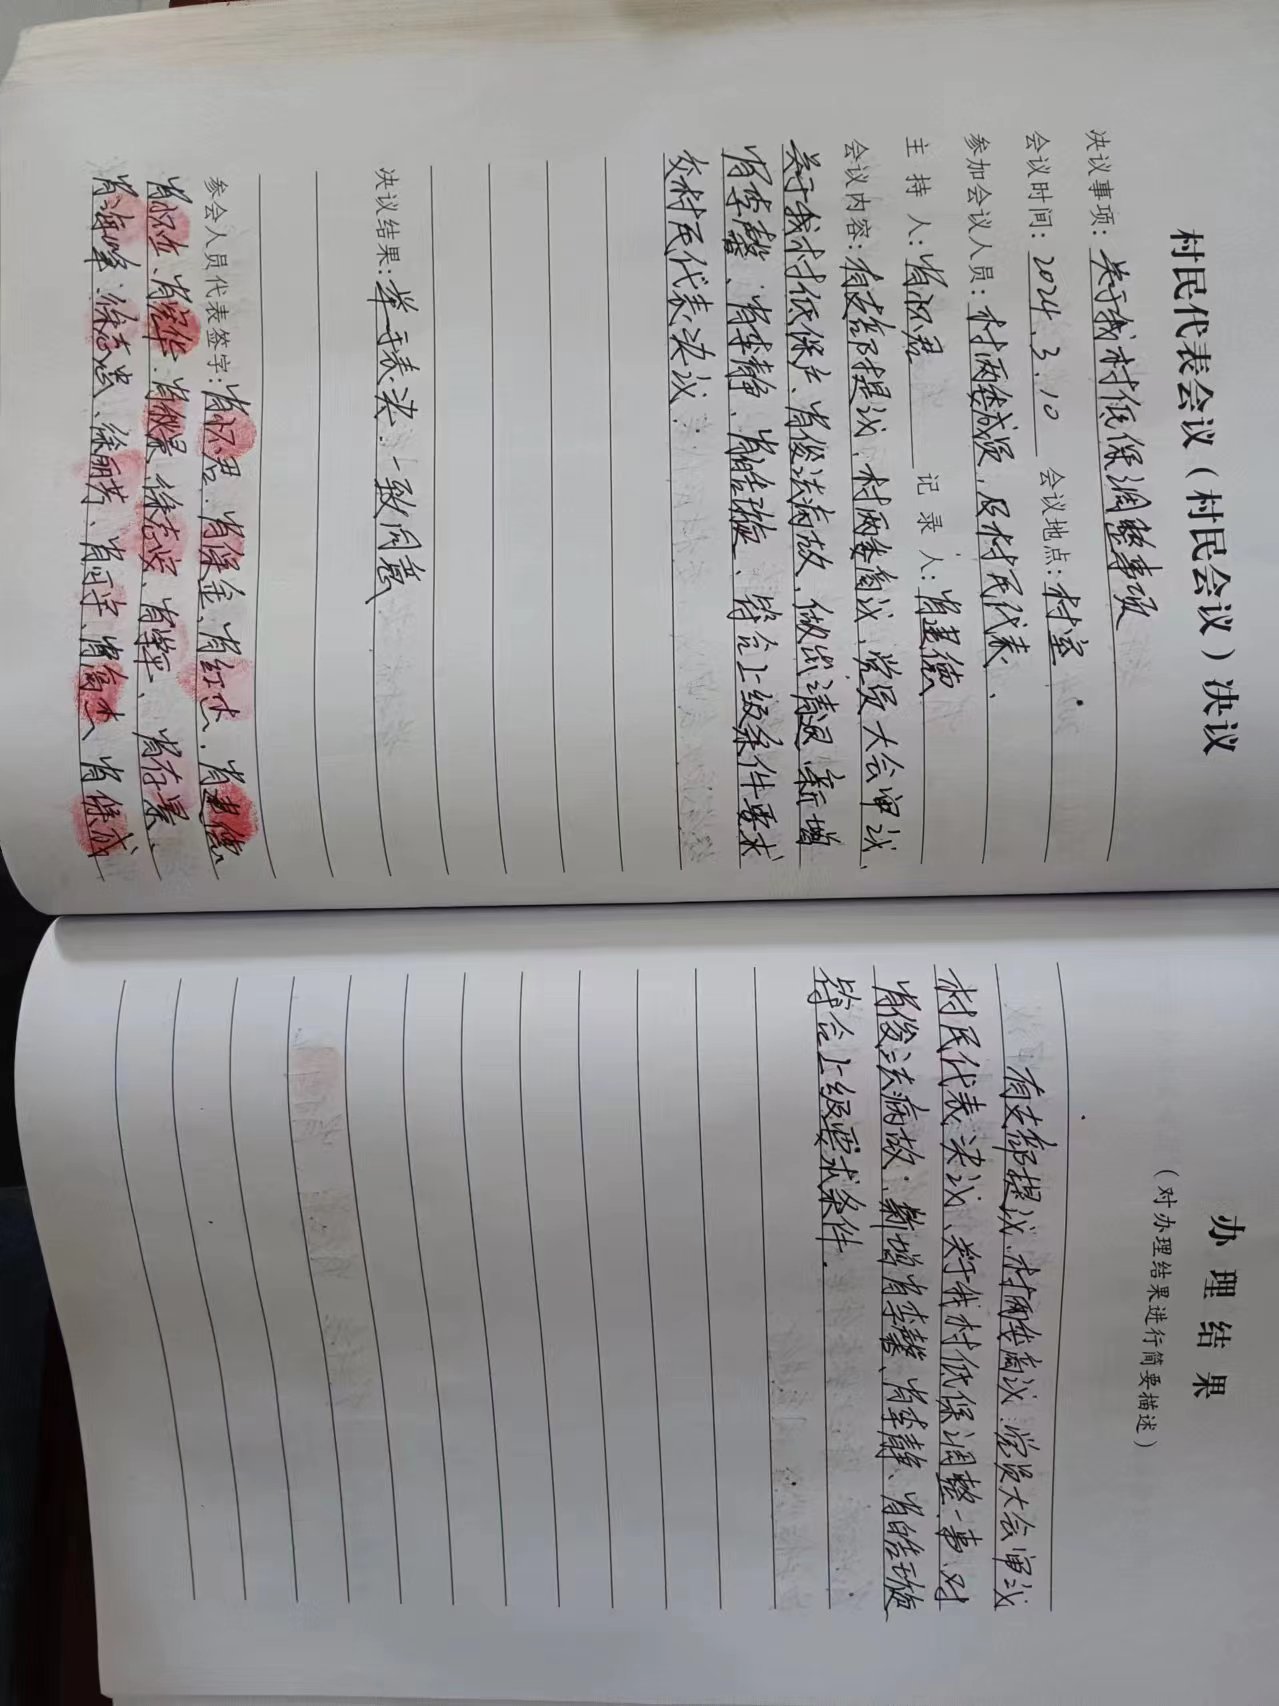 村民代表会议（村民会议）决议
决议事项：关于我村低保调整事项
会议时间：2024.3.10 会议地点：村室
参加会议人员：村两委成员、及村民代表、
主持人：肖怀君 记录人：肖建德
会议内容：有支部提议、村两委商议、党员大会审议、
关于我村低保户、肖俊法病故、做出清退、新增
肖李馨、肖李静、肖皓璇、符合上级条件要求
交村民代表决议.
决议结果：举手表决.一致同意
参会人员代表签字：肖怀君、肖保金、肖红杰、肖建德、
肖华、徐志安、肖存景、
肖海峰、徐志忠、徐丽芳、肖保成
办理结果
（对办理结果进行简要描述）
有支部提议、村两委商议、党员大会审议
村民代表决议、关于我村低保调整一事、对
肖俊法病故、新增肖李馨、肖李静、肖皓璇
符合上级要求条件.